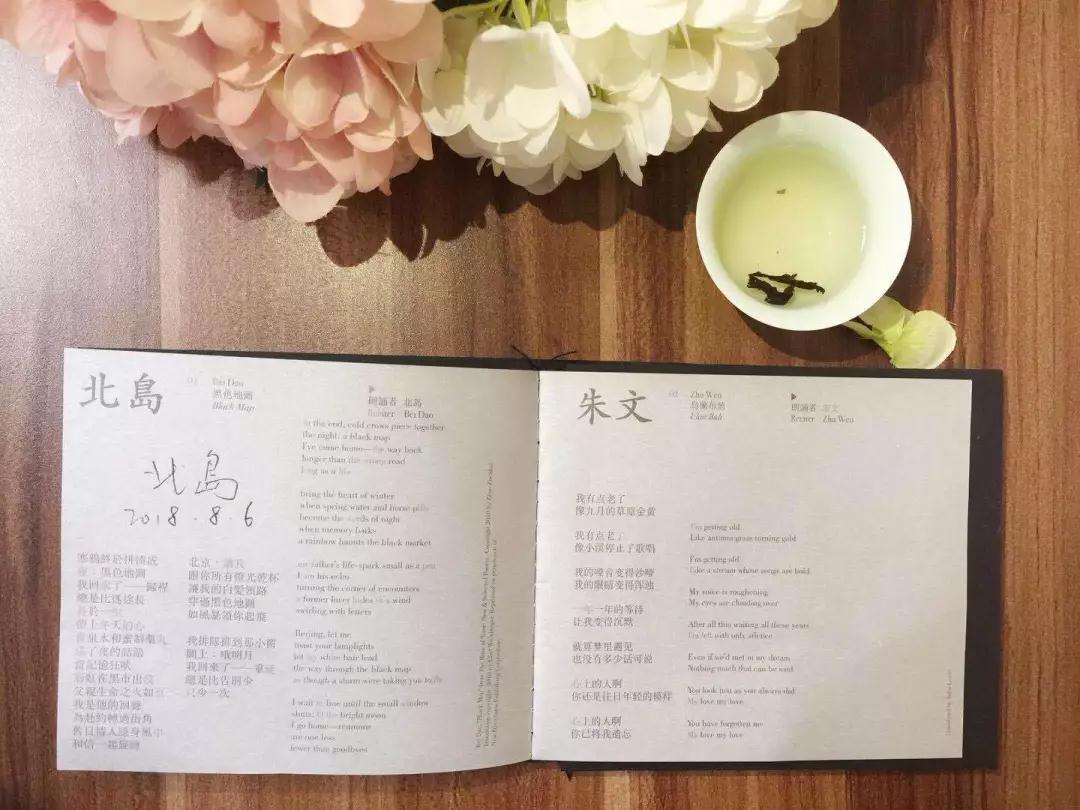 北島
01
Bei Dao
黑色地圖
Black Map
朗誦者 北島
Reciter Bei Dao
北島
2018.8.6
寒鴉終於拼湊成
夜：黑色地圖
我回來了——歸程
總是比迷途長
長於一生
帶上冬天的心
當泉水和蜜制藥丸
成了夜的話語
當記憶狂吠
彩虹在黑市出沒
父親生命之火如豆
我是他的回聲
為赴約轉過街角
舊日情人隱身風中
和信一起旋轉
北京，讓我
跟你所有燈光乾杯
讓我的白髮領路
穿過黑色地圖
如風暴領你起飛
我排隊排到那小窗
關上：哦明月
我回來了——重逢
總是比告別少
只少一次
in the end, cold crows piece together
the night: a black map
I've come home—the way back
longer than the wrong road
long as a life
bring the heart of winter
when spring water and horse pills
become the words of night
when memory barks
a rainbow haunts the black market
my father's life-spark small as a pea
I am his echo
turning the corner of encounters
a former lover hides in a wind
swirling with letters
Beijing, let me
toast your lamplights
let my white hair lead
the way through the black map
as though a storm were taking you to fly
I wait in line until the small window
shuts: O the bright moon
I go home—reunions
are one less
fewer than goodbyes
朱文
02
Zhu Wen
烏蘭布統
朗誦者 朱文
Reciter Zhu Wen
我有点老了
像九月的草原金黄
我有点老了
像小溪停止了歌唱
我的嗓音变得沙哑
我的眼睛变得浑浊
一年一年的等待
让我变得沉默
就算梦里遇见
也没有多少话可说
心上的人啊
你还是往日年轻的模样
心上的人啊
你已将我遗忘
I'm getting old
Like autumn grass turning gold
I'm getting old
Like a stream whose songs are hold
My voice is roughening
My eyes are clouding over
After all this waiting all these years
I'm left with only silence
Even if we'd met in my dream
Nothing much that can be said
You look just as you always did
My love my love
You have forgotten me
My love my love